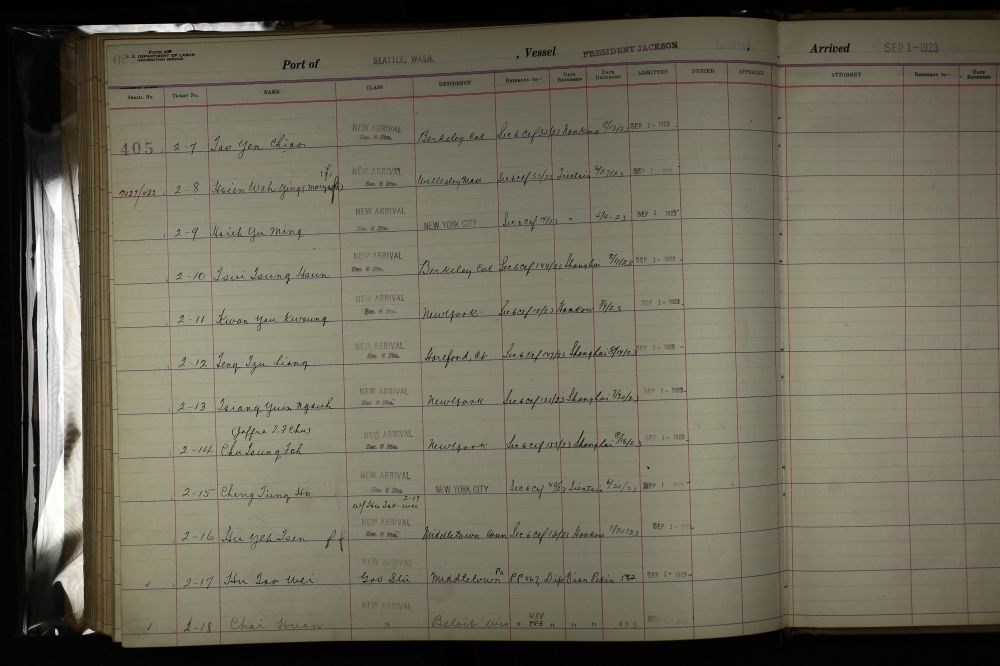 Form 430
U. S. DEPARTMENT OF LABOR
IMMIGRATION SERVICE
Port of SEATTLE, WASH. , Vessel PRESIDENT JACKSON , Arrived SEP 1-1923
SERIAL NO. TICKET NO. NAME CLASS RESIDENCE REFERRED TO— DATE REFERRED DATE RETURNED ADMITTED DENIED APPEALED ATTORNEY REFERRED TO— DATE REFERRED
NEW ARRIVAL
405 2-7 Tao Yen Chiao Sec. 6 Stu. Berkeley Cal Sec 6 Cef 35/23 Nanking SEP 1-1923
NEW ARRIVAL
2-8 Hsien Wah Sec. 6 Stu. Wellesley Mass Sec 6 Cef 33/23 Tientsin 6/27/23 SEP 1-1923
NEW ARRIVAL
2-9 Hsieh Yu Ming Sec. 6 Stu. NEW YORK CITY Sec 6 Cef " SEP 1-1923
NEW ARRIVAL
2-10 Tsui Tsung Hsun Sec. 6 Stu. Berkeley Cal Sec 6 Cef 144/23 Shanghai 8/11/23 SEP 1-1923
NEW ARRIVAL
2-11 Kwan Yau Kweung Sec. 6 Stu. New York Sec 6 Cef 10/23 Hankow SEP 1-1923
NEW ARRIVAL
2-12 Teng Tzu Liang Sec. 6 Stu. Sec 6 Cef 147/23 Shanghai 8/14/23 SEP 1-1923
NEW ARRIVAL
2-13 Tsiang Yuin Sec. 6 Stu. New York Sec 6 Cef 121/23 Shanghai 7/30/23 SEP 1-1923
(Joffre T. F. Chu) NEW ARRIVAL
2-14 Chu Tsung Foh Sec. 6 Stu. New York Sec 6 Cef 155/23 Shanghai 8/16/23 SEP 1-1923
NEW ARRIVAL
2-15 Cheng Tung Ho Sec. 6 Stu. NEW YORK CITY Sec 6 Cef Tientsin SEP 1 1923
2-17
NEW ARRIVAL
2-16 Hu Yeh Tsen Sec. 6 Stu. Middletown Conn Sec 6 Cef 13/23 Hankow 7/21/23 SEP 1-1923
NEW ARRIVAL
2-17 Hu Tao Wei Gov Stu Middletown Pa PP 467 Dip Bian Pekin SEP 1-1923
NEW ARRIVAL
2-18 Chai Hsuan " Beloit Wis " 438 " " " 533 SEP 1-1923